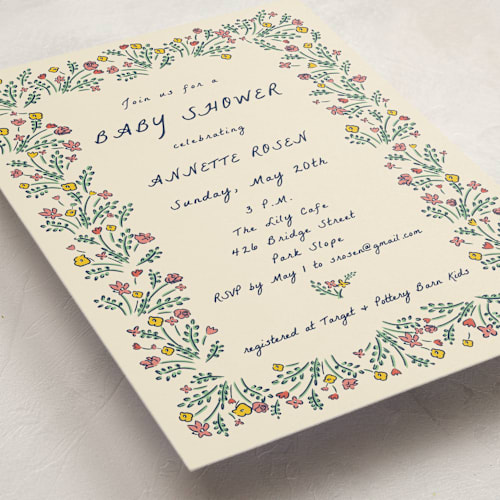 Join us for a
BABY SHOWER
celebrating
ANNETTE ROSEN
Sunday, May 20th
3 P.M.
The Lily Cafe
426 Bridge Street
Park Slope
RSVP by May 1 to srosen@gmail.com
registered at Target + Pottery Barn Kids